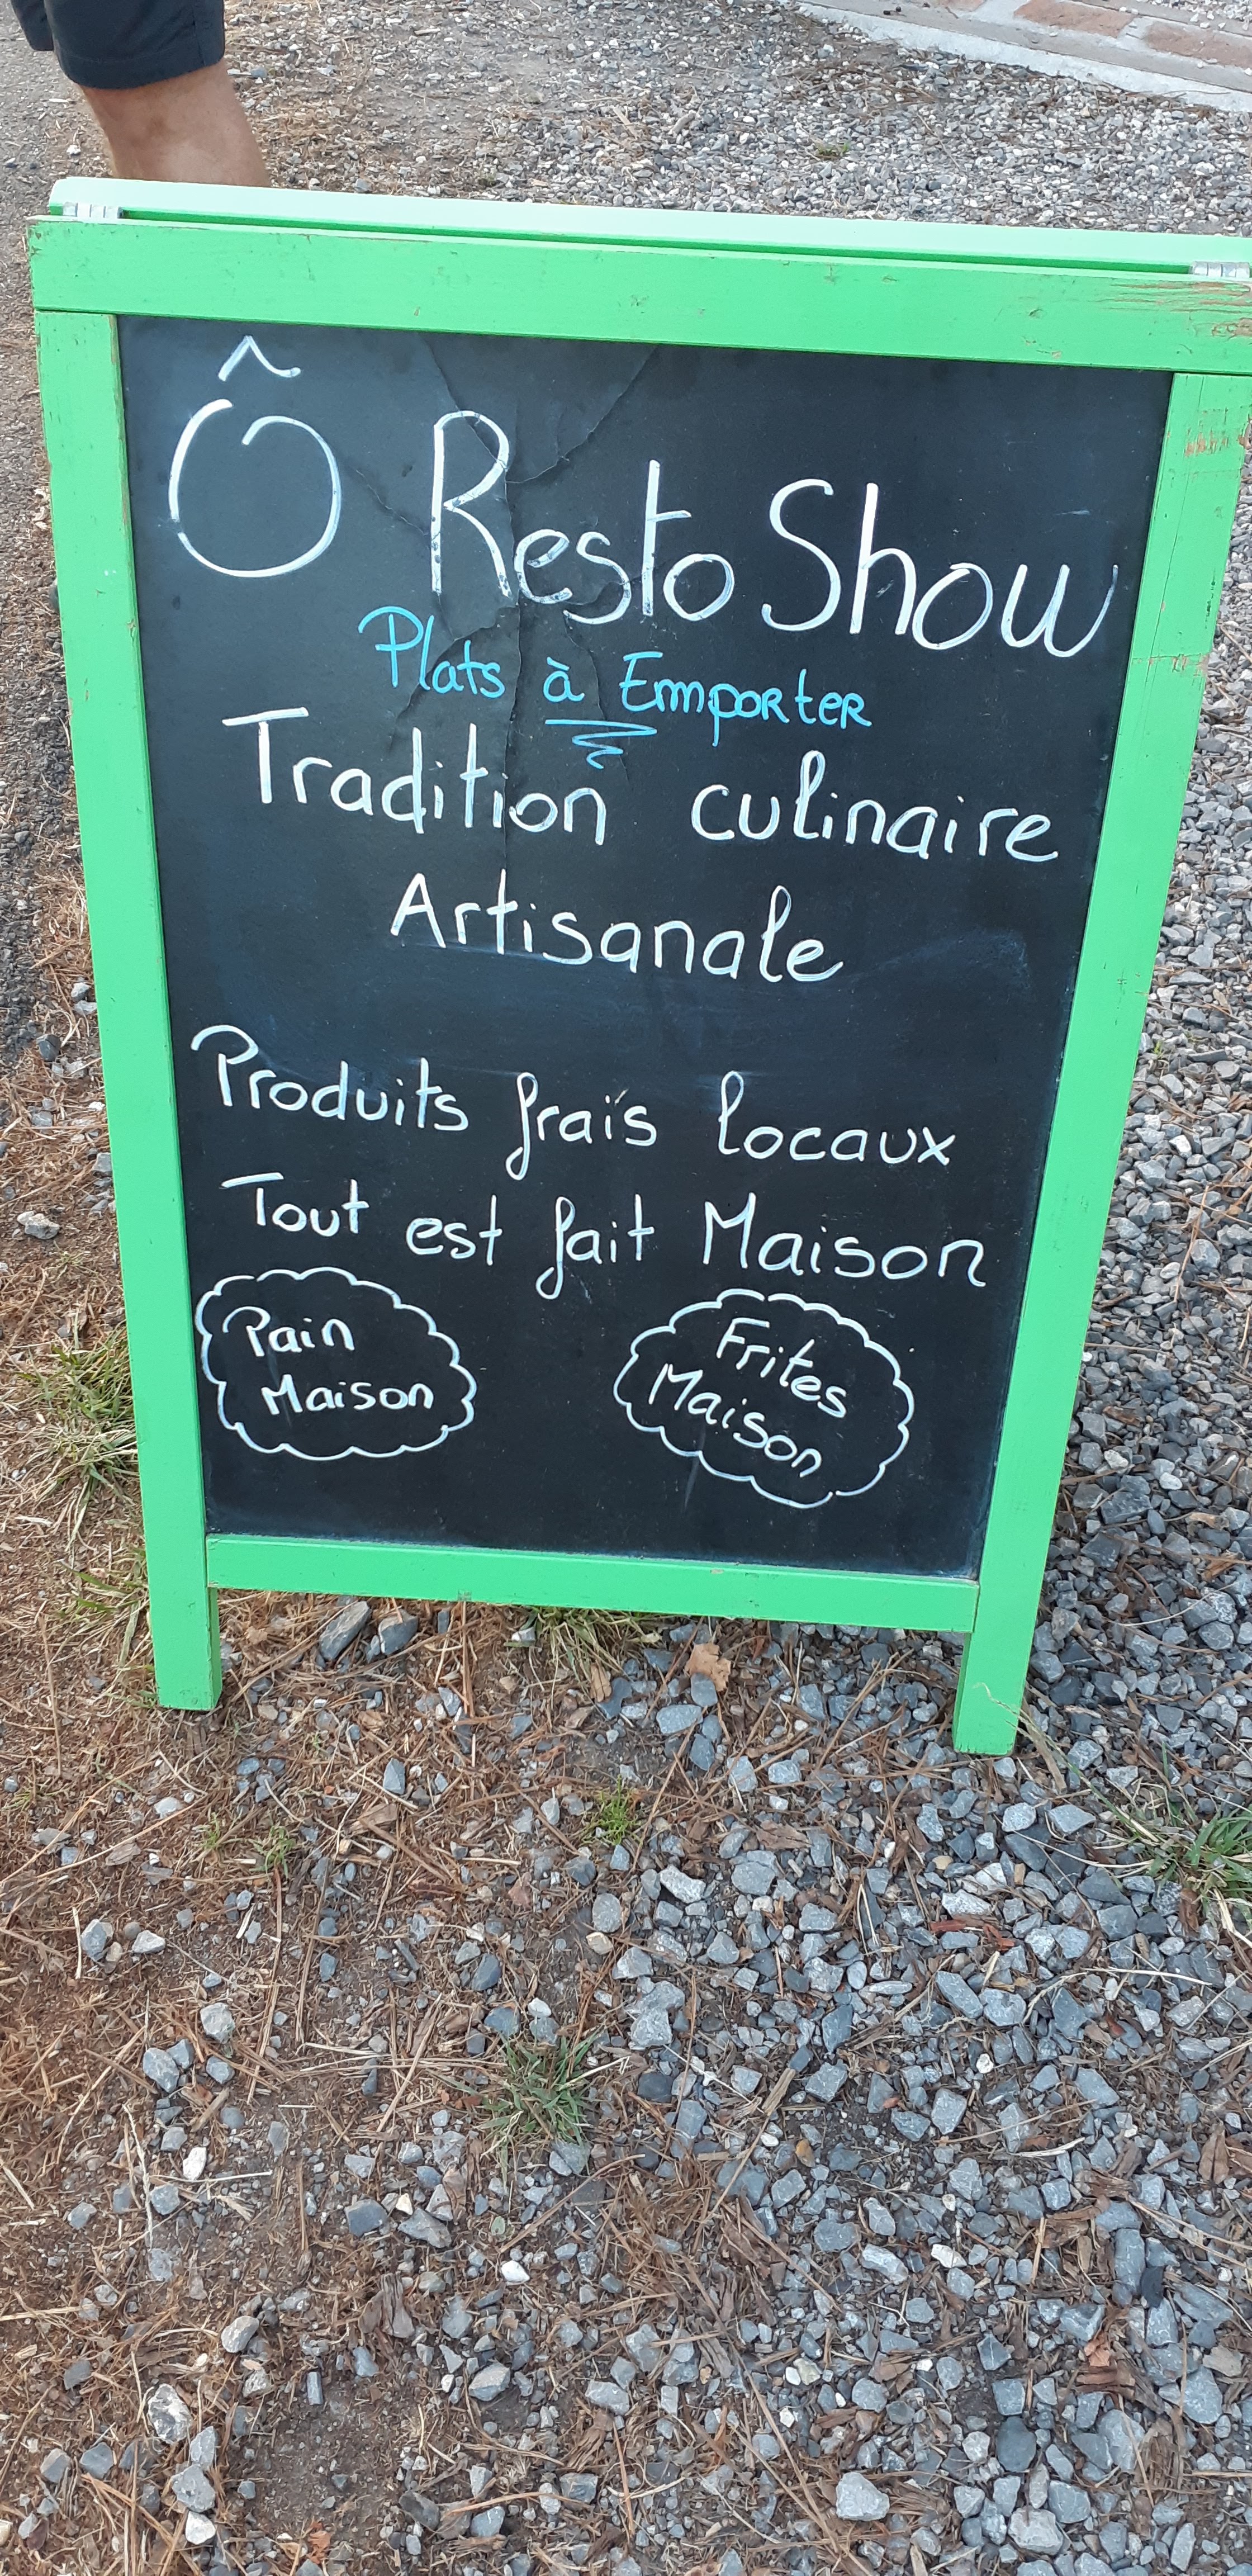 Ô Resto Show
Plats à Emporter
Tradition culinaire
Artisanale
Produits frais locaux
Tout est fait Maison
Pain
Maison
Frites
Maison